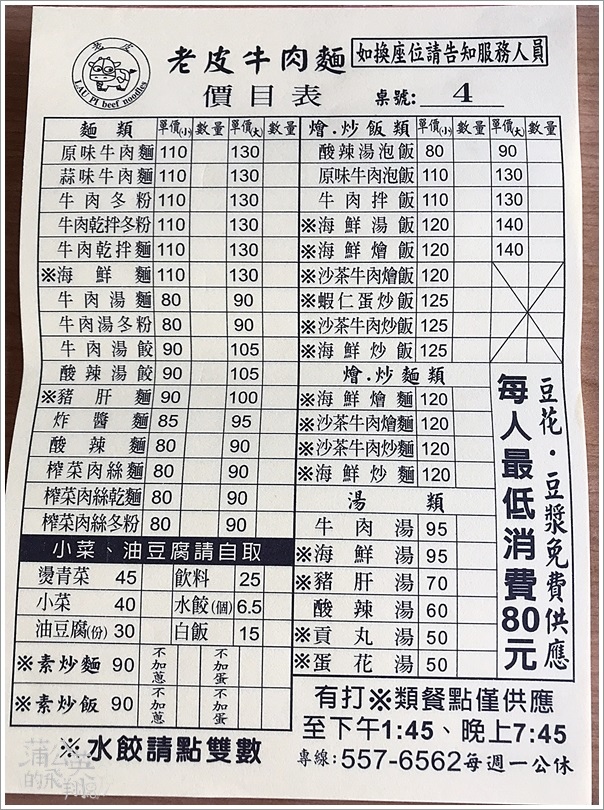 老皮
LAU PI beef noodles
老皮牛肉麵
如換座位請告知服務人員
價目表
桌號: 4
麵類 單價(小) 數量 單價(大) 數量
原味牛肉麵 110 130
蒜味牛肉麵 110 130
牛肉冬粉 110 130
牛肉乾拌冬粉 110 130
牛肉乾拌麵 110 130
※海鮮麵 110 130
牛肉湯麵 80 90
牛肉湯冬粉 80 90
牛肉湯餃 90 105
酸辣湯餃 90 105
※豬肝麵 90 100
炸醬麵 85 95
酸辣麵 80 90
榨菜肉絲麵 80 90
榨菜肉絲乾麵 80 90
榨菜肉絲冬粉 80 90
小菜、油豆腐請自取
燙青菜 45 飲料 25
小菜 40 水餃(個) 6.5
油豆腐(份) 30 白飯 15
※素炒麵 90 不加蔥 不加蛋
※素炒飯 90 不加蔥 不加蛋
※水餃請點雙數
燴.炒飯類 單價(小) 數量 單價(大) 數量
酸辣湯泡飯 80 90
原味牛肉泡飯 110 130
牛肉拌飯 110 130
※海鮮湯飯 120 140
※海鮮燴飯 120 140
※沙茶牛肉燴飯 120
※蝦仁蛋炒飯 125
※沙茶牛肉炒飯 125
※海鮮炒飯 125
燴.炒麵類
※海鮮燴麵 120
※沙茶牛肉燴麵 120
※沙茶牛肉炒麵 120
※海鮮炒麵 120
湯類
牛肉湯 95
※海鮮湯 95
※豬肝湯 70
酸辣湯 60
※貢丸湯 50
※蛋花湯 50
豆花.豆漿免費供應
每人最低消費80元
有打※類餐點僅供應
至下午1:45、晚上7:45
專線:557-6562每週一公休
蒲公英
的飛翔